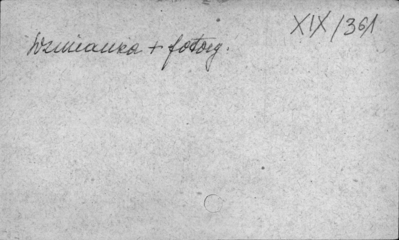 XIX/361
Wzmianka + fotogr.